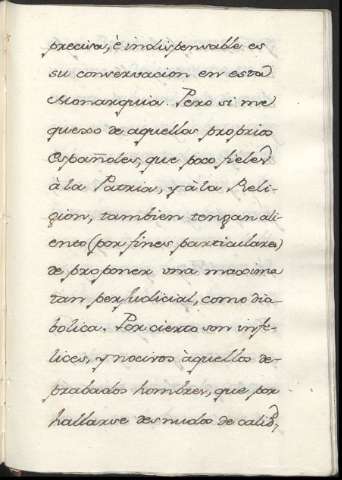 precisa, è indispensable es
su conservacion en esta
Monarquia. Pero si me
quexo de aquellos proprios
Españoles, que poco fieles
à la Patria, y à la Reli-
gion, tambien tengan ali-
ento (por fines particulares)
de proponer una maxima
tan perjudicial, como dia-
bolica. Por cierto son infe-
lices, y nocivos àquellos de-
prabados hombres, que por
hallarse desnudos de calid.ᵈ,